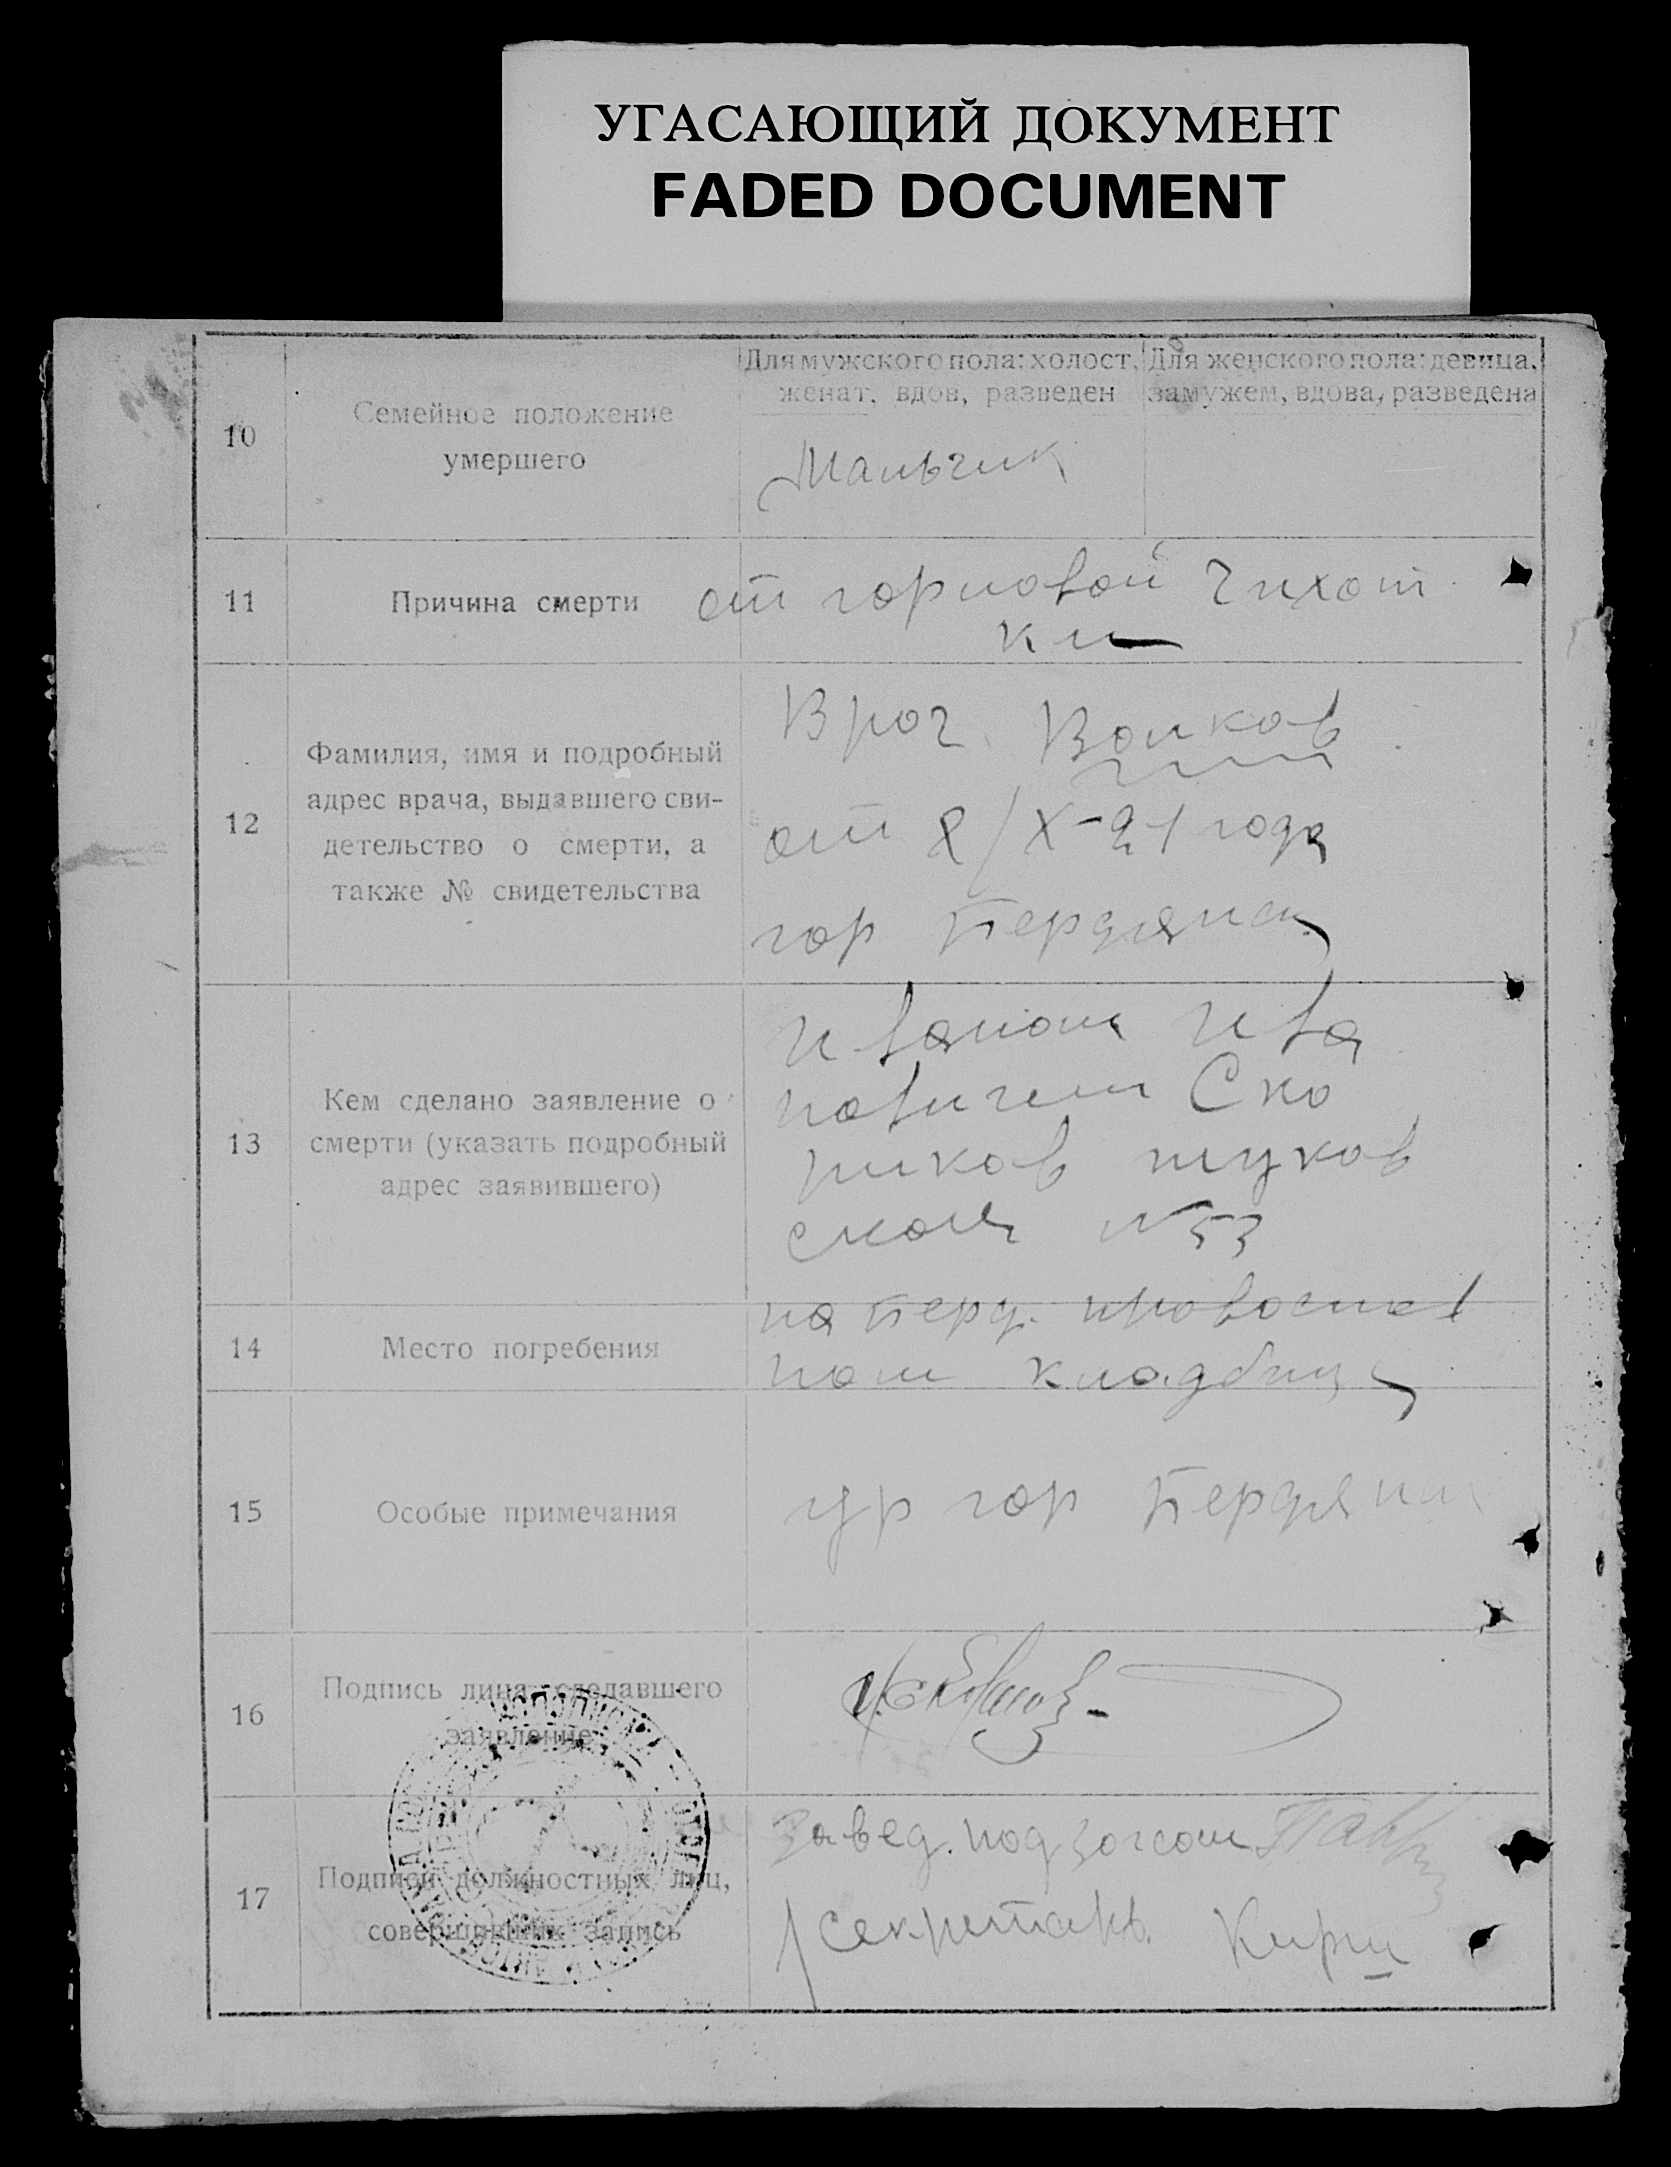 УГАСАЮЩИЙ ДОКУМЕНТ
FADED DOCUMENT
10
Семейное положение
умершего
Для мужского пола: холост,
женат, вдов, разведен
Для женского пола: девица,
замужем, вдова, разведена
Мальчик
11
Причина смерти
от горловой чихот
ки
12
Фамилия, имя и подробный
адрес врача, выдавшего сви-
детельство о смерти, а
также № свидетельства
Врач Волков
от 8/X-21 года
гор Бердянск
13
Кем сделано заявление о
смерти (указать подробный
адрес заявившего)
Иваном Ива
новичем Ско
риков
ской N 53
14
Место погребения
на Берд. православ
ном кладбищ
15
Особые примечания
ур гор Бердянск
16
Подпись лица, сделавшего
заявление
17
Подписи должностных лиц,
совершивших запись
Завед. подзагсом
Секретарь